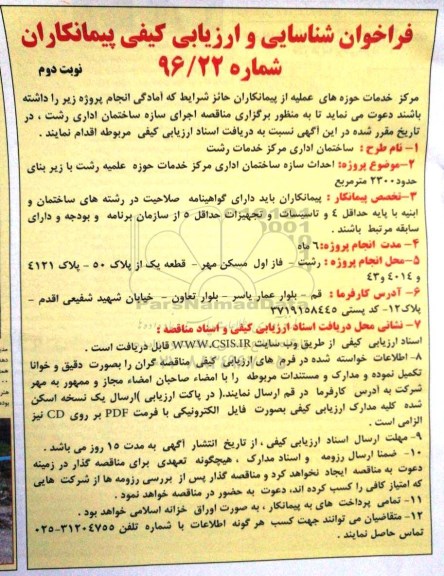 فراخوان شناسایی و ارزیابی کیفی پیمانکاران
شماره ۹۶/۲۲
نوبت دوم
مرکز خدمات حوزه های علمیه از پیمانکاران حائز شرایط که آمادگی انجام پروژه زیر را داشته
باشند دعوت می نماید تا به منظور برگزاری مناقصه اجرای سازه ساختمان اداری رشت ، در
تاریخ مقرر شده در این آگهی نسبت به دریافت اسناد ارزیابی کیفی مربوطه اقدام نمایند .
۱- نام طرح : ساختمان اداری مرکز خدمات رشت
۲-موضوع پروژه: احداث سازه ساختمان اداری مرکز خدمات حوزه علمیه رشت با زیر بنای
حدود۲۳۰۰ مترمربع
۳-تخصص پیمانکار : پیمانکاران باید دارای گواهینامه صلاحیت در رشته های ساختمان و
ابنیه با پایه حداقل ٤ و تاسیسات و تجهیزات حداقل ٥ از سازمان برنامه و بودجه و دارای
سابقه مرتبط باشند .
۴- مدت انجام پروژه: ۶ ماه
۵-محل انجام پروژه : رشت - فاز اول مسکن مهر - قطعه یک از پلاک ۵۰ - پلاک ۴۱۲۱
و ۴۰۱۴ و ۴۳
۶- آدرس کارفرما : قم - بلوار عمار یاسر - بلوار تعاون - خیابان شهید شفیعی اقدم -
پلاک۱۲- کد پستی ۳۷۱۹۱۵۸۴۴۵
۷- نشانی محل دریافت اسناد ارزیابی کیفی و اسناد مناقصه :
اسناد ارزیابی کیفی از طریق وب سایت WWW.CSIS.IR قابل دریافت است .
۸- اطلاعات خواسته شده در فرم های ارزیابی کیفی مناقصه گران را بصورت دقیق و خوانا
تکمیل نموده و مدارک و مستندات مربوطه را با امضاء صاحبان امضاء مجاز و ممهور به مهر
شرکت به آدرس کارفرما در قم ارسال نمایند.( در پاکت ارزیابی )ارسال یک نسخه اسکن
شده کلیه مدارک ارزیابی کیفی بصورت فایل الکترونیکی با فرمت PDF بر روی CD نیز
الزامی است .
۹- مهلت ارسال اسناد ارزیابی کیفی ، از تاریخ انتشار آگهی به مدت ۱۵ روز می باشد .
۱۰- ضمنا ارسال رزومه و اسناد مدارک ، هیچگونه تعهدی برای مناقصه گذار در زمینه
دعوت به مناقصه ایجاد نخواهد کرد و مناقصه گذار پس از بررسی رزومه ها از شرکت هایی
که امتیاز کافی را کسب کرده اند، دعوت به حضور در مناقصه خواهد نمود .
۱۱- تمامی پرداخت های به پیمانکار ، به صورت اوراق خزانه اسلامی خواهد بود .
۱۲- متقاضیان می توانند جهت کسب هر گونه اطلاعات با شماره تلفن ۳۱۲۰۴۷۵۵-۰۲۵
تماس حاصل نمایند .
ParsNamadData